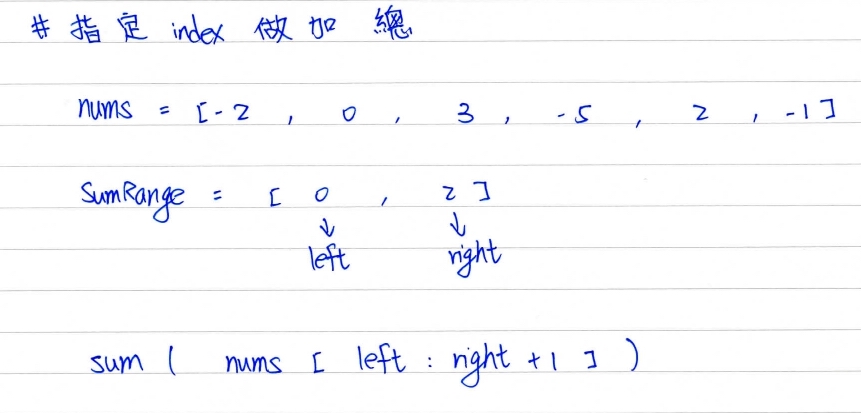 # 指定 index 做加總
nums = [-2 , 0 , 3 , -5 , 2 , -1]
SumRange = [ 0 , 2 ]
↓ ↓
left right
sum ( nums [ left : right +1 ] )